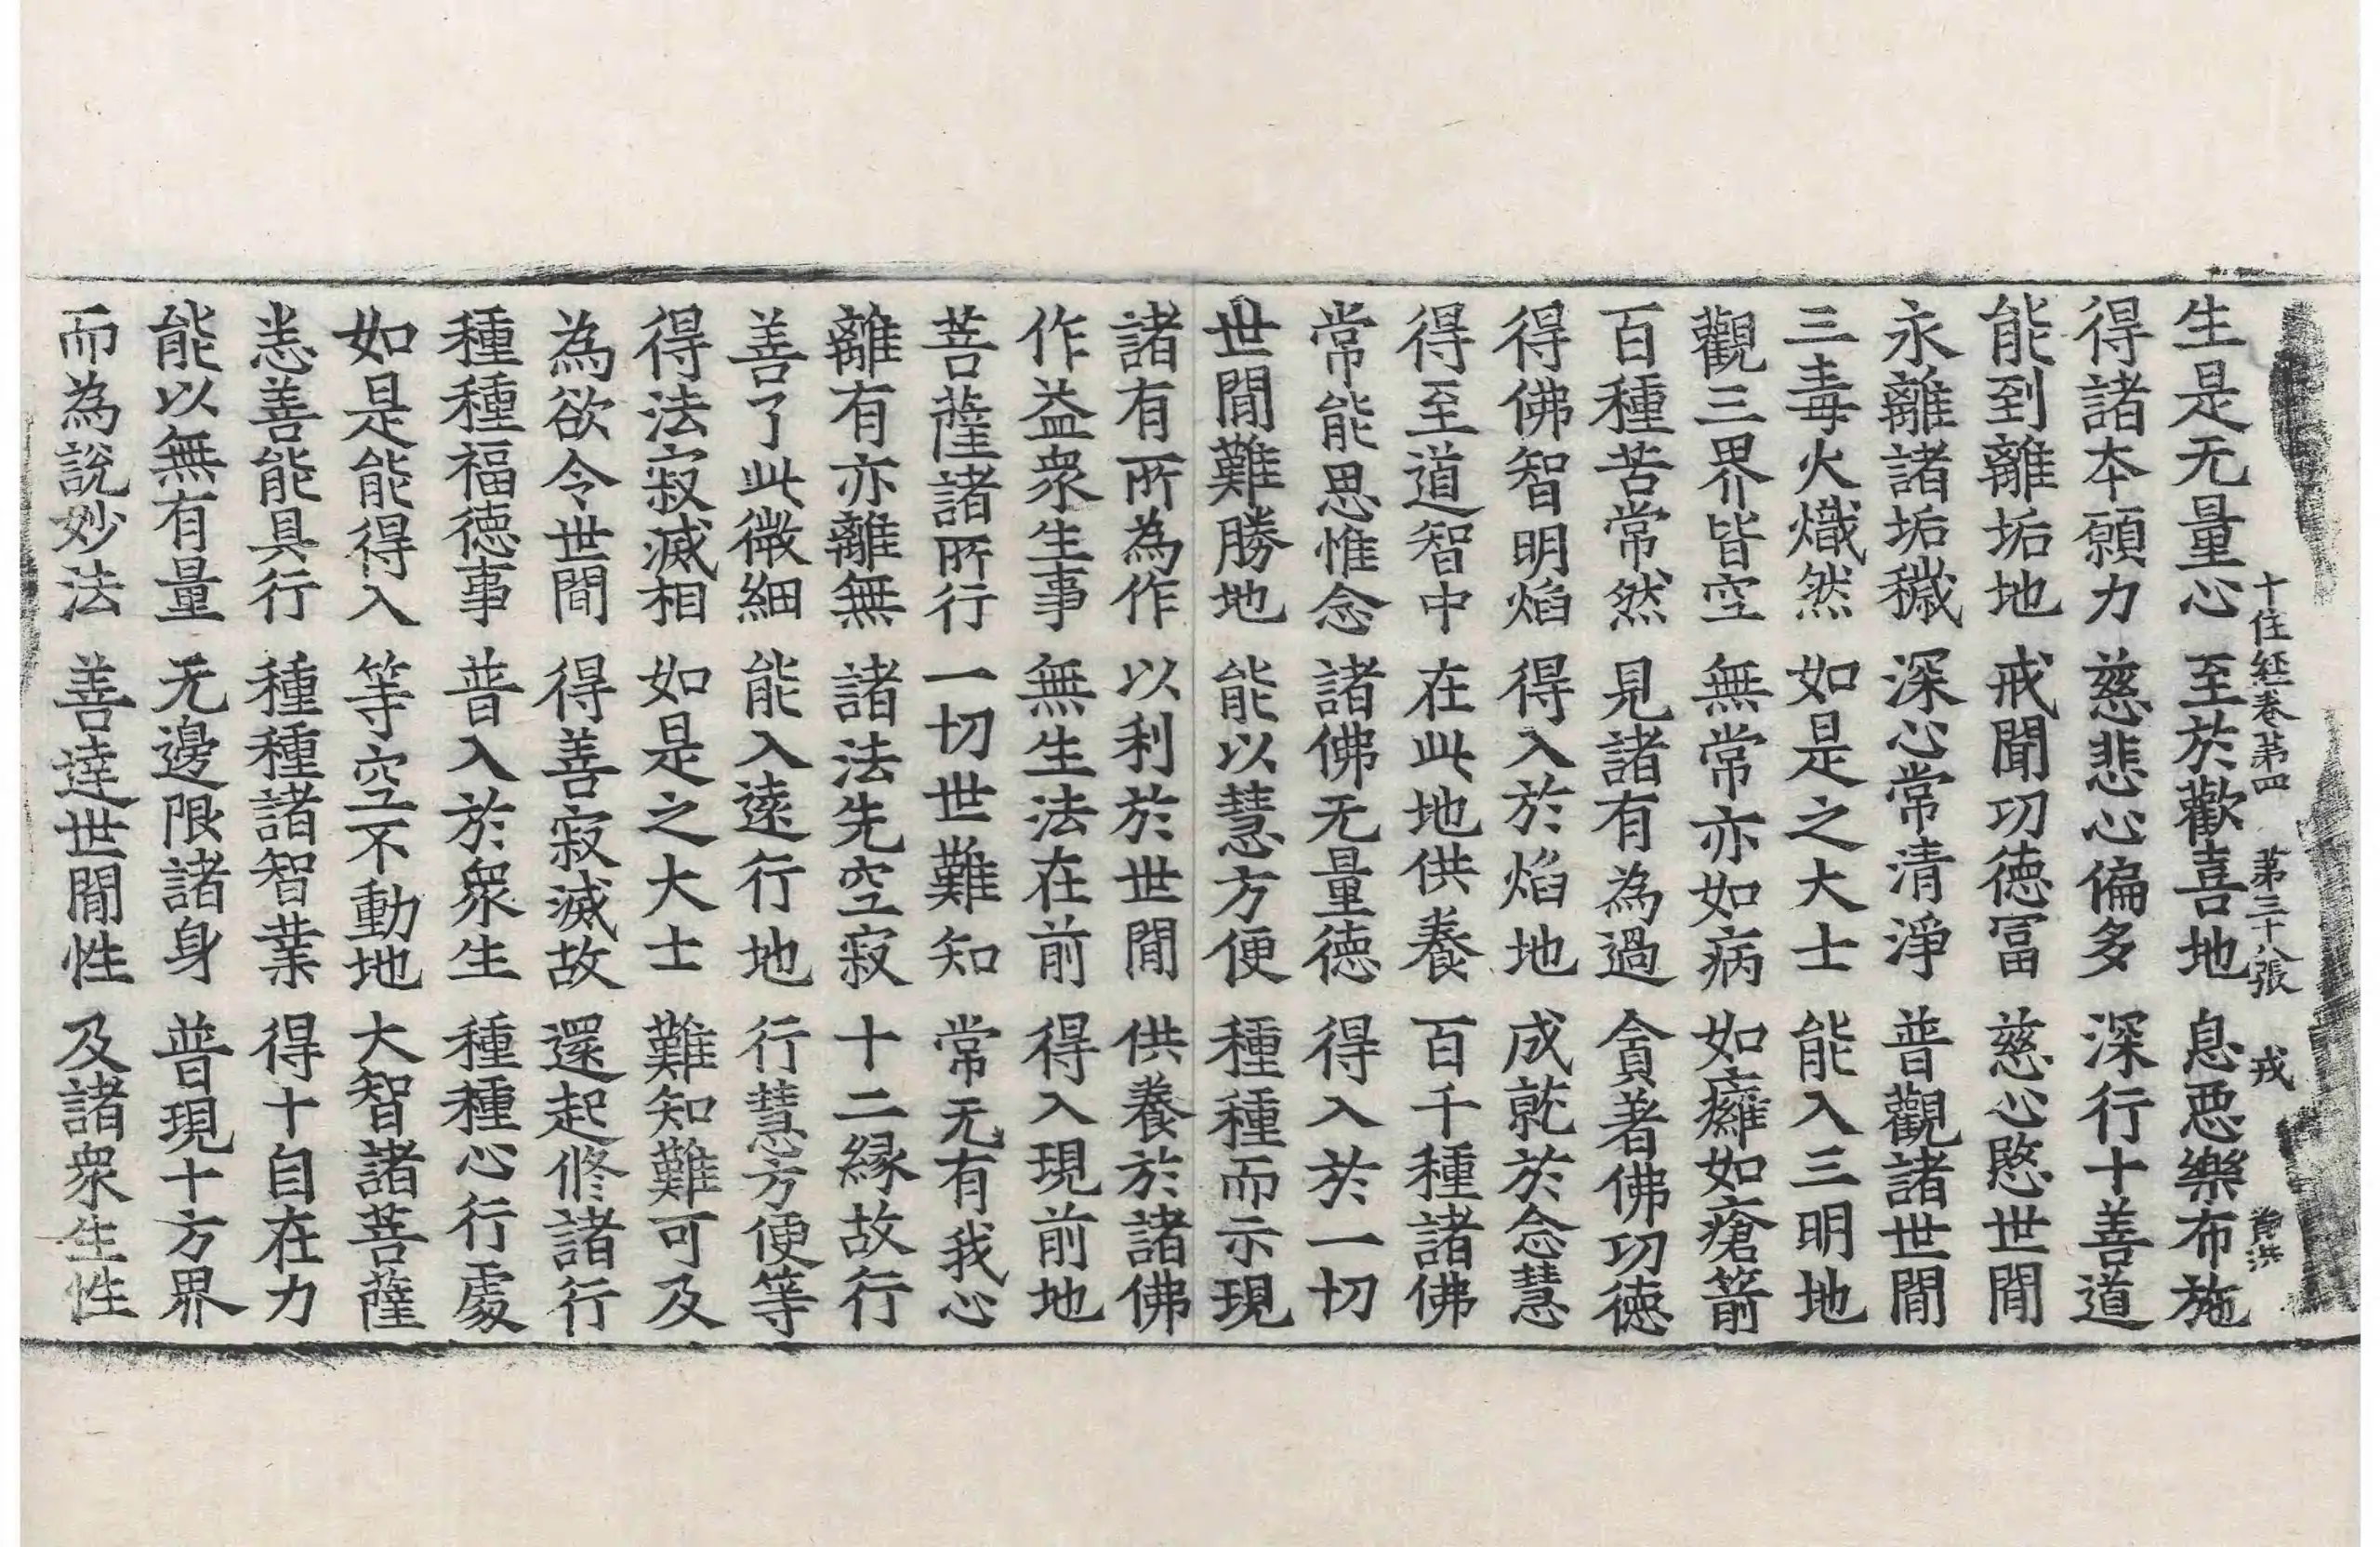 十住經卷第四 第三十八張 戎
生是无量心 至於歡喜地 息惡樂布施
得諸夲願力 慈悲心偏多 深行十善道
能到離垢地 戒聞功德冨 慈心愍世閒
永離諸垢穢 深心常清淨 普觀諸世閒
三毒火熾然 如是之大士 能入三明地
觀三界皆空 無常亦如病 如癰如瘡箭
百種苦常然 見諸有為過 貪著佛功德
得佛智明焰 得入於焰地 成就於念慧
得至道智中 在此地供養 百千種諸佛
常能思惟念 諸佛无量德 得入於一切
世閒難勝地 能以慧方便 種種而示現
諸有所為作 以利於世閒 供養於諸佛
作益衆生事 無生法在前 得入現前地
菩薩諸所行 一切世難知 常无有我心
離有亦離無 諸法先空寂 十二緣故行
善了此微細 能入遠行地 行慧方便等
得法寂滅相 如是之大士 難知難可及
為欲令世閒 得善寂滅故 還起修諸行
種種福德事 普入於衆生 種種心行處
如是能得入 等空不動地 大智諸菩薩
恙善能具行 種種諸智業 得十自在力
能以無有量 无邊限諸身 普現十方界
而為說妙法 善達世閒性 及諸衆生性